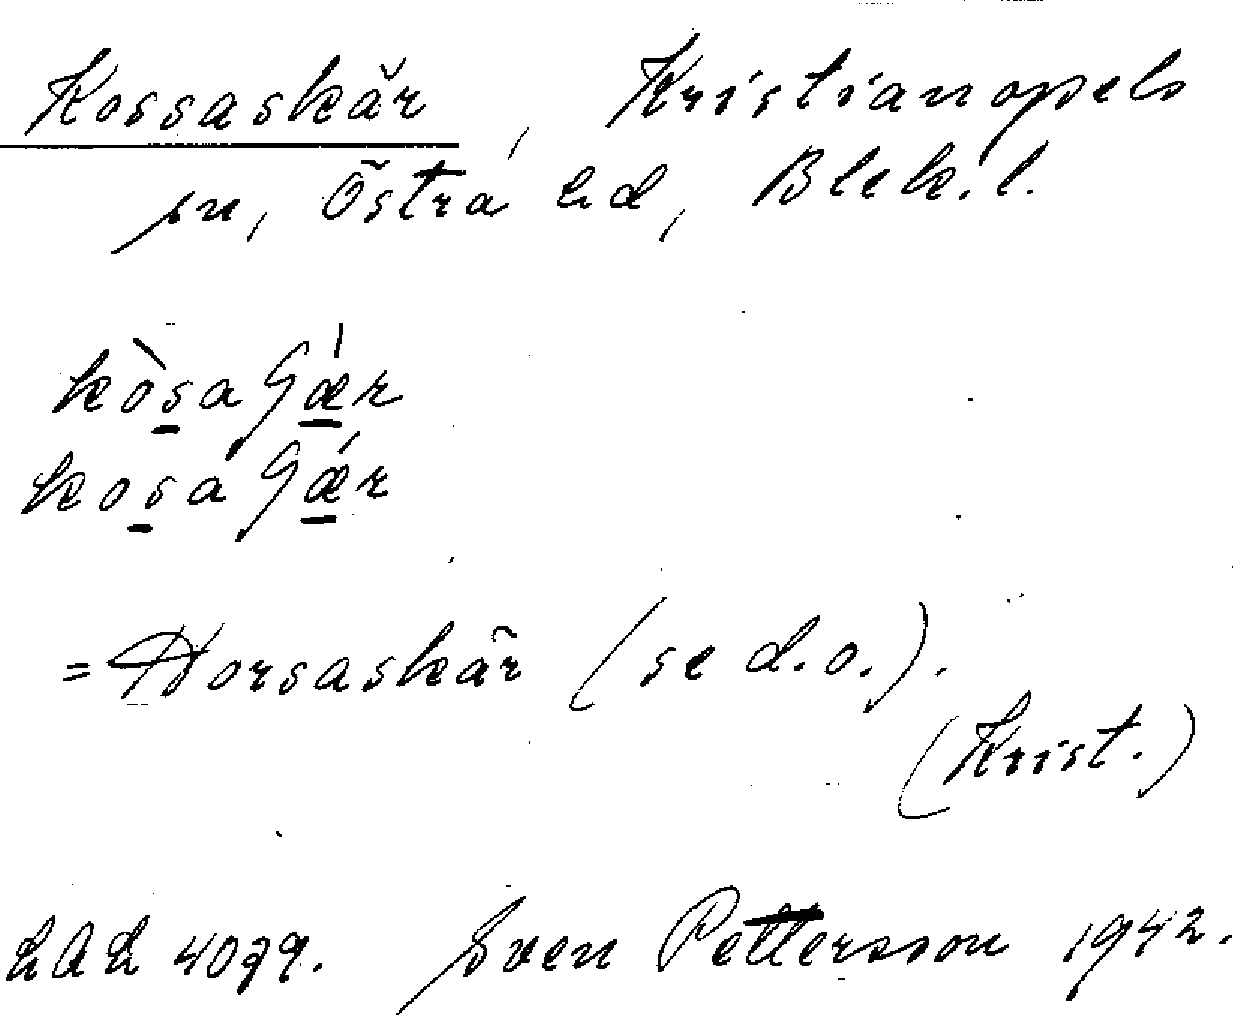 Kossaskär, Kristianopels
sn, Östra hd, Blek. l.
kòsaʃǽr
kosaʃǽr
= Horsaskär (se d.o.).
(Krist.)
LAL 4079. Sven Pettersson 1942.